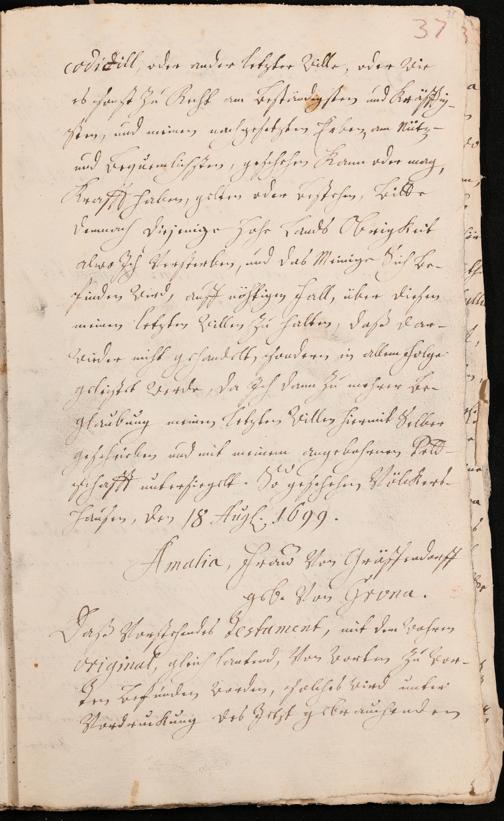 37
codicill, oder ander letzter Wille, oder wie
es sonst zu Recht am beständigsten und kräffti-
gsten, und meinen nachgesetzten Erben am Nütz-
und bequemlichsten, geschehen kann oder mag,
Krafft haben, gelten oder bestehen, Bitte
demnach diejenige hohe Lands Obrigkeit
alwo Ich versterben, und das Meinige sich be-
finden wird, auff nöthigen Fall, über diesen
meinen letzten Willen zu halten, daß dar-
wieder nicht gehandelt, sondern in allem folge
geleistet werde, Da Ich dann zu mehrer Be-
glaubung meinen letzten Willen hiermit selber
geschrieben und mit meinem angebohrnen Pett-
schafft untersiegelt. So geschehen Völckers-
hausen, den 18 Augl. 1699.
Amalia, Frau von
gebe. von Grona.
Daß vorstehendes Testament, mit dem wahren
original, gleich lautend, von worten zu wor-
ten befunden worden, solches wird unter
Vordruckung des Jetzt gebrauchenden